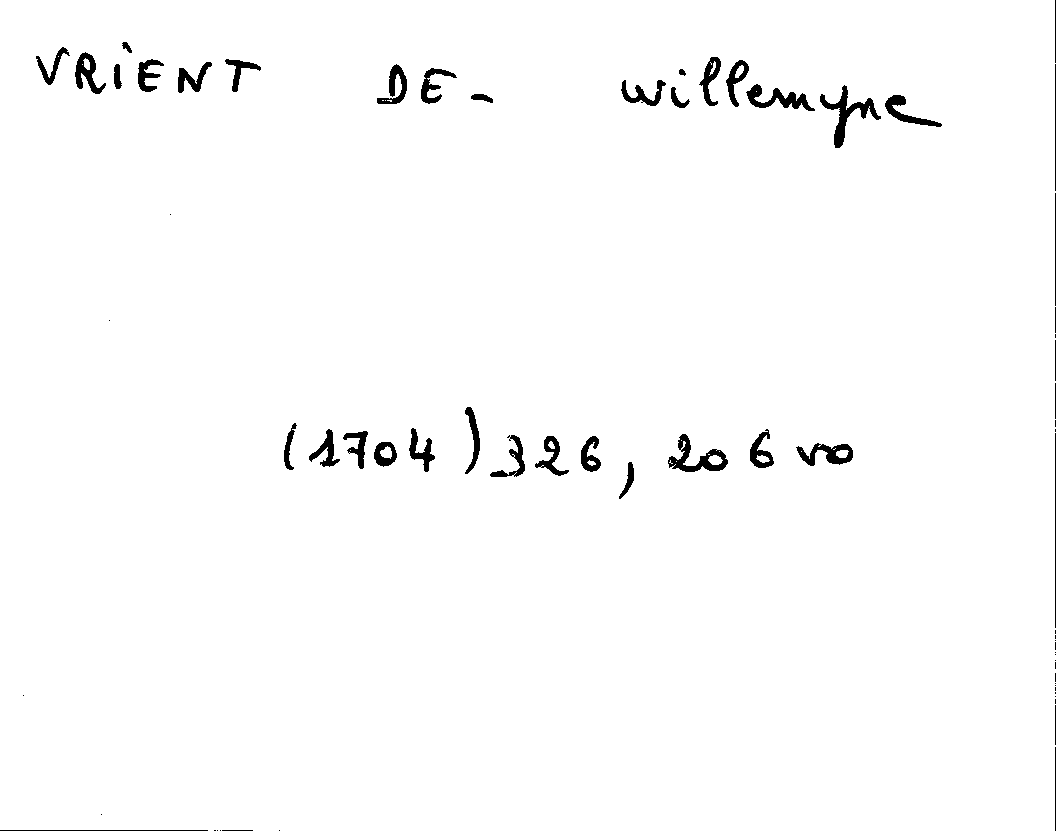 VRIENT DE- willemyne
(1704) 326, 206 vo